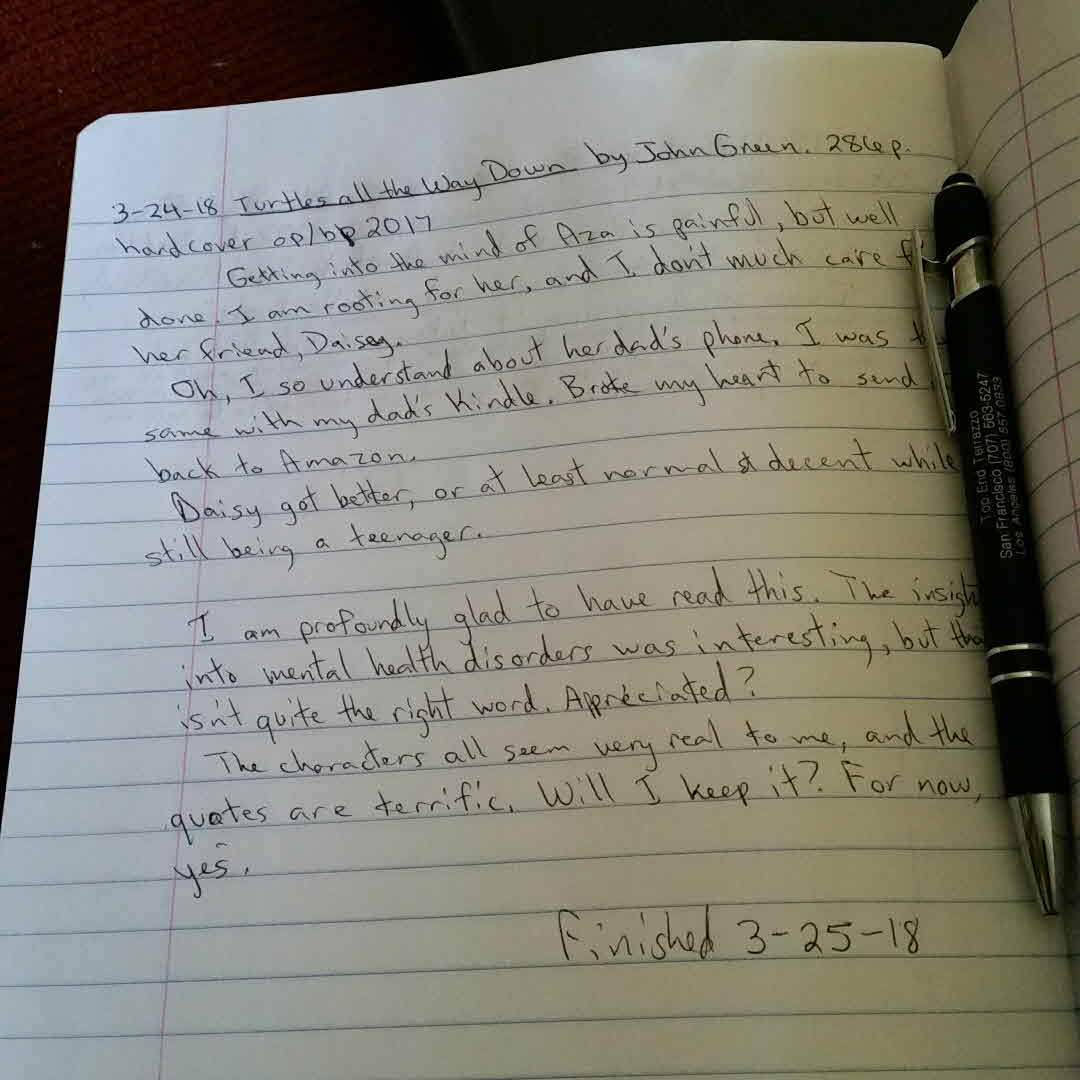 3-24-18 Turtles all the Way Down by John Green. 286 p.
hardcover op/bp 2017
Getting into the mind of Aza is painful, but well
done. I am rooting for her, and I don't much care f
her friend, Daisey.
Oh, I so understand about her dad's phone. I was t
same with my dad's Kindle. Broke my heart to send
back to Amazon.
Daisy got better, or at least normal & decent while
still being a teenager.
I am profoundly glad to have read this. The insigh
into mental health disorders was interesting, but tha
isn't quite the right word. Appreciated?
The characters all seem very real to me, and the
quotes are terrific. Will I keep it? For now,
yes.
Finished 3-25-18
Top End Terrazzo
San Francisco (707) 563-5247
Los Angeles (800) 557 0833